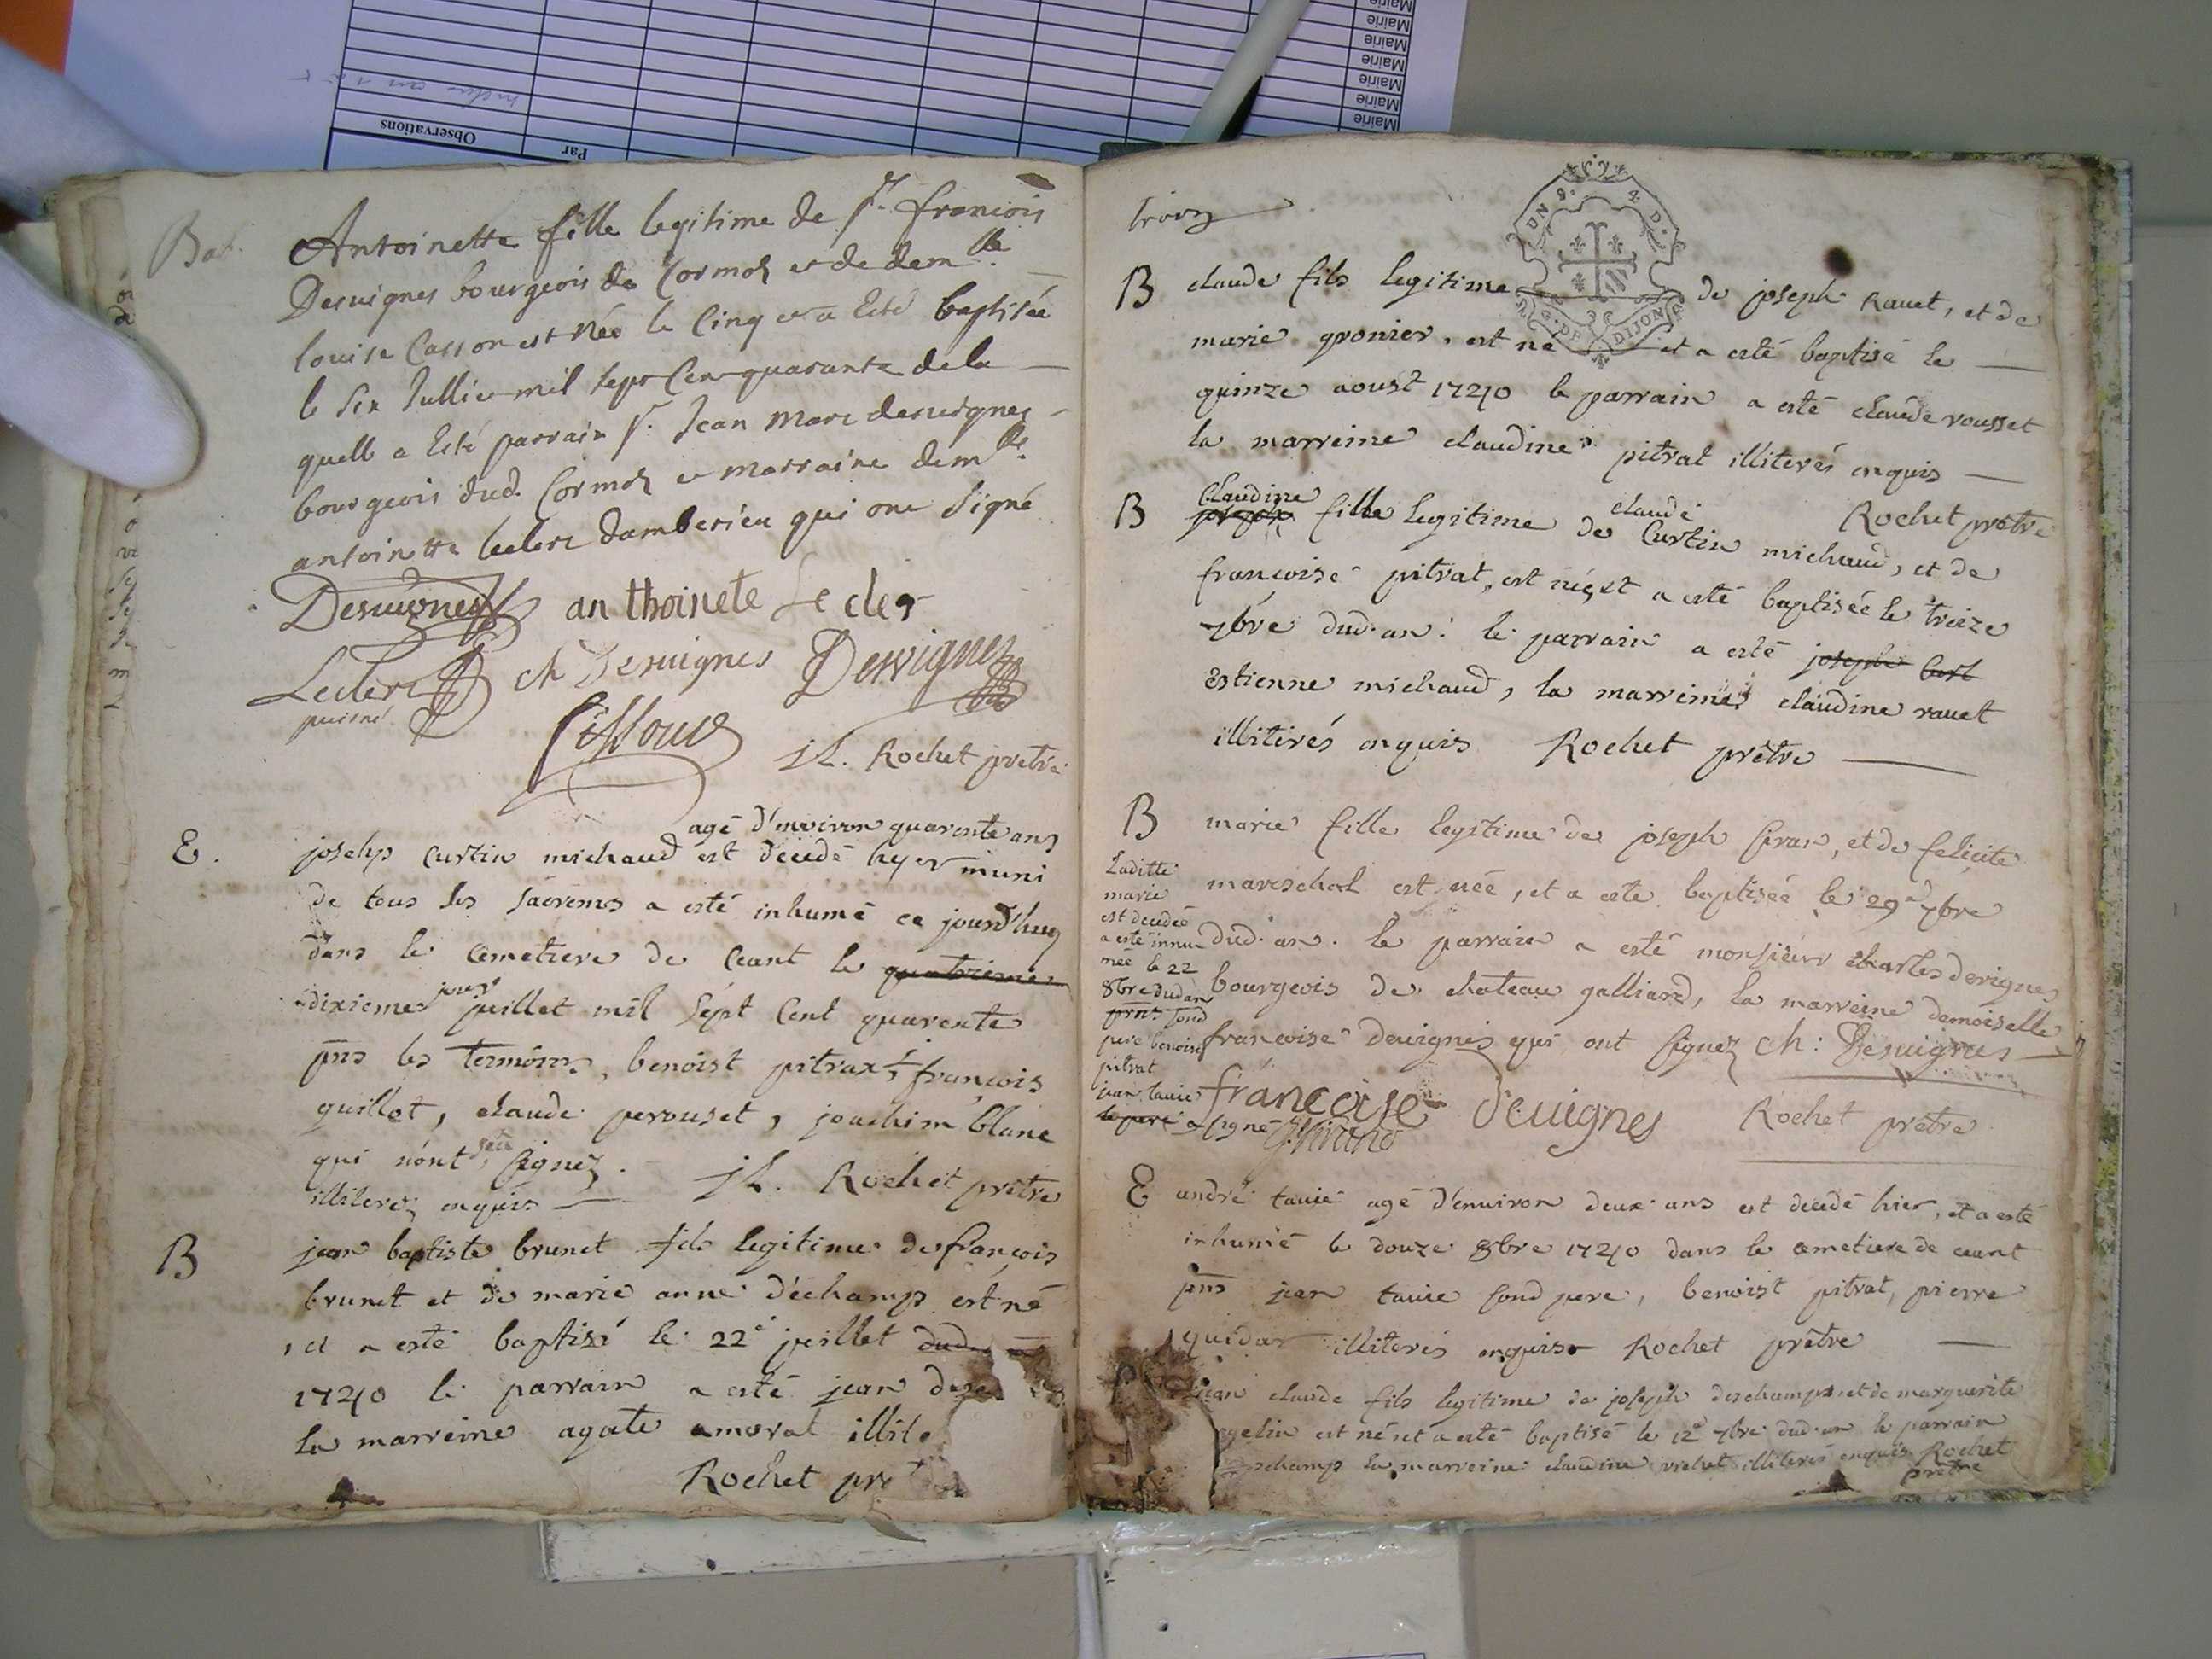 Observations
Par
Mairie
Mairie
Mairie
Mairie
Mairie
Mairie
Mairie
Bat.
Antoinette fille legitime de Sr. francois
Desuignes bourgeois de Cormoz et de demlle
louise Casson est Née le Cinq et a Esté baptisée
le six Jullie mil sept Cen quarante de la
quelle a Esté parrain Sr. Jean Marc desuignes
bourgeois dud. Cormoz et marraine demlle
antoinette leclerc damberieu qui ont signé
Desuignes an thoinete Le cler
Leclerc ch Desuignes Desvignes
puisné
J L. Rochet pretre
E.
agé d'environ quarente ans
josehp curtin michaud est décedé hyer muni
de tous les sacremts a esté inhumé ce jourd'huy
dans le cemetiere de Ceant le quatrieme
dixieme jour juillet mil sépt Cent quarente
pns les temoins, benoist pitrat, françois
guillot, claude perouset, joachim blanc
qui nont signez.
illiterez enquis J L. Rochet prêtre
B
jean baptiste brunet fils legitime de françois
brunet et de marie anne déchamp est né
et a esté baptisé le 22e juillet dud.
1740 le parrain a esté jean
la marreine agate amorat
Rochet
trois
UN S. 4. D.
G. DE DIJON
B
claude fils legitime de joseph rauet, et de
marie gronier, est né et a esté baptisé le
quinze aoust 1740 le parrain a esté claude rousset
la marreine claudine pitrat illiterés enquis
Rochet prêtre
B
Claudine claude
joseph fille legitime de Curtin michaud, et de
françoise pitrat, est née, et a esté baptisée le treize
7bre dud. an. le parrain a esté joseph Curt
estienne michaud, la marreine claudine rauet
illiterés enquis Rochet prêtre
B
marie fille legitime de joseph, et de felicite
mareschal est née, et a este baptisée le 29e 7bre
dud. an. le parrain a esté monsieur charles devignes
bourgeois de chateau galliard, la marreine demoiselle
francoise devignes qui ont signez ch: Desuignes
françoise deuignes Rochet prêtre
Laditte
marie
est decedée
a esté innu
mée le 22
8bre dud an
pnts sond
pere benoist
pitrat
jean tauie
le pere a signé
E
andré tauie agé d'environ deux ans est decedé hier, et a esté
inhumé le douze 8bre 1740 dans le cemetiere de ceant
pns jean tauie sond pere, benoist pitrat, pierre
guidar illiterés enquis Rochet prêtre
jean claude fils legitime de joseph deschamps et de marguerite
est né et a esté baptisé le 12e 7bre dud. an le parrain
la marreine claudine illiterés enquis Rochet
prêtre